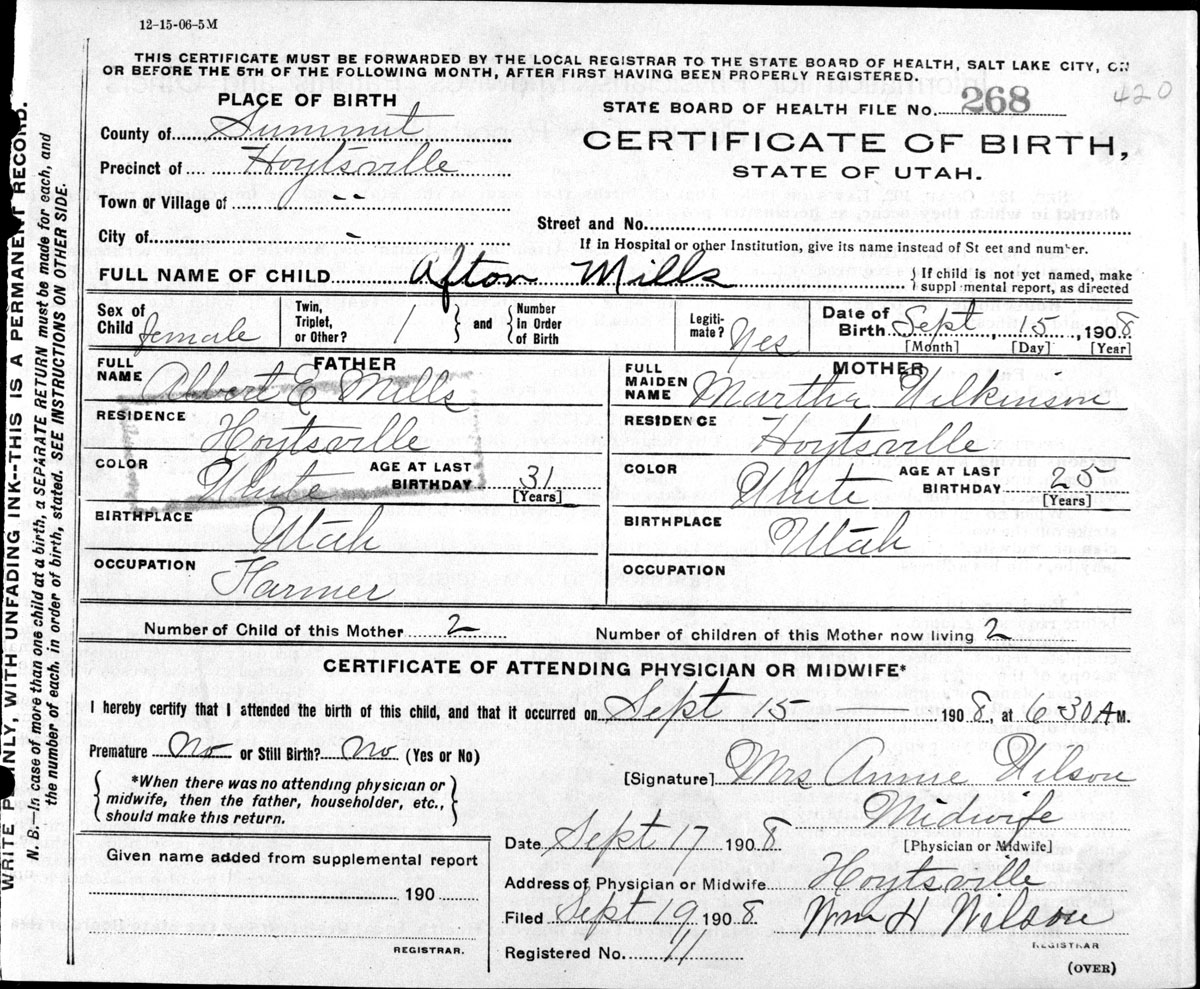 12-15-06-5M
THIS CERTIFICATE MUST BE FORWARDED BY THE LOCAL REGISTRAR TO THE STATE BOARD OF HEALTH, SALT LAKE CITY, ON
OR BEFORE THE 5TH OF THE FOLLOWING MONTH, AFTER FIRST HAVING BEEN PROPERLY REGISTERED.
420
PLACE OF BIRTH
STATE BOARD OF HEALTH FILE No. 268
County of Summit
CERTIFICATE OF BIRTH,
Precinct of Hoytsville
STATE OF UTAH.
Town or Village of - -
Street and No.
City of -
If in Hospital or other Institution, give its name instead of St eet and number.
FULL NAME OF CHILD Afton Mills
{ If child is not yet named, make
suppl mental report, as directed
Sex of Child female
Twin, Triplet, or Other? 1 } and { Number In Order of Birth
Legiti-mate? Yes
Date of Birth Sept 15, 1908
[Month] [Day] [Year]
FATHER
FULL NAME Albert E Mills
RESIDENCE Hoytsville
COLOR White AGE AT LAST BIRTHDAY 31
[Years]
BIRTHPLACE Utah
OCCUPATION Farmer
MOTHER
FULL MAIDEN NAME Martha Wilkinson
RESIDENCE Hoytsville
COLOR White AGE AT LAST BIRTHDAY 25
[Years]
BIRTHPLACE Utah
OCCUPATION
Number of Child of this Mother 2
Number of children of this Mother now living 2
CERTIFICATE OF ATTENDING PHYSICIAN OR MIDWIFE*
I hereby certify that I attended the birth of this child, and that it occurred on Sept 15 1908, at 6 30 A M.
Premature No or Still Birth? No (Yes or No)
{ *When there was no attending physician or
midwife, then the father, householder, etc.,
should make this return. }
[Signature] Mrs Annie Wilson
Midwife
[Physician or Midwife]
Date Sept 17 1908
Given name added from supplemental report
190
REGISTRAR.
Address of Physician or Midwife Hoytsville
Filed Sept 19 1908 Wm H Wilson
REGISTRAR
Registered No. 11
(OVER)
WRITE P INLY, WITH UNFADING INK--THIS IS A PERMANENT RECORD.
N. B.—In case of more than one child at a birth, a SEPARATE RETURN must be made for each, and
the number of each, in order of birth, stated. SEE INSTRUCTIONS ON OTHER SIDE.